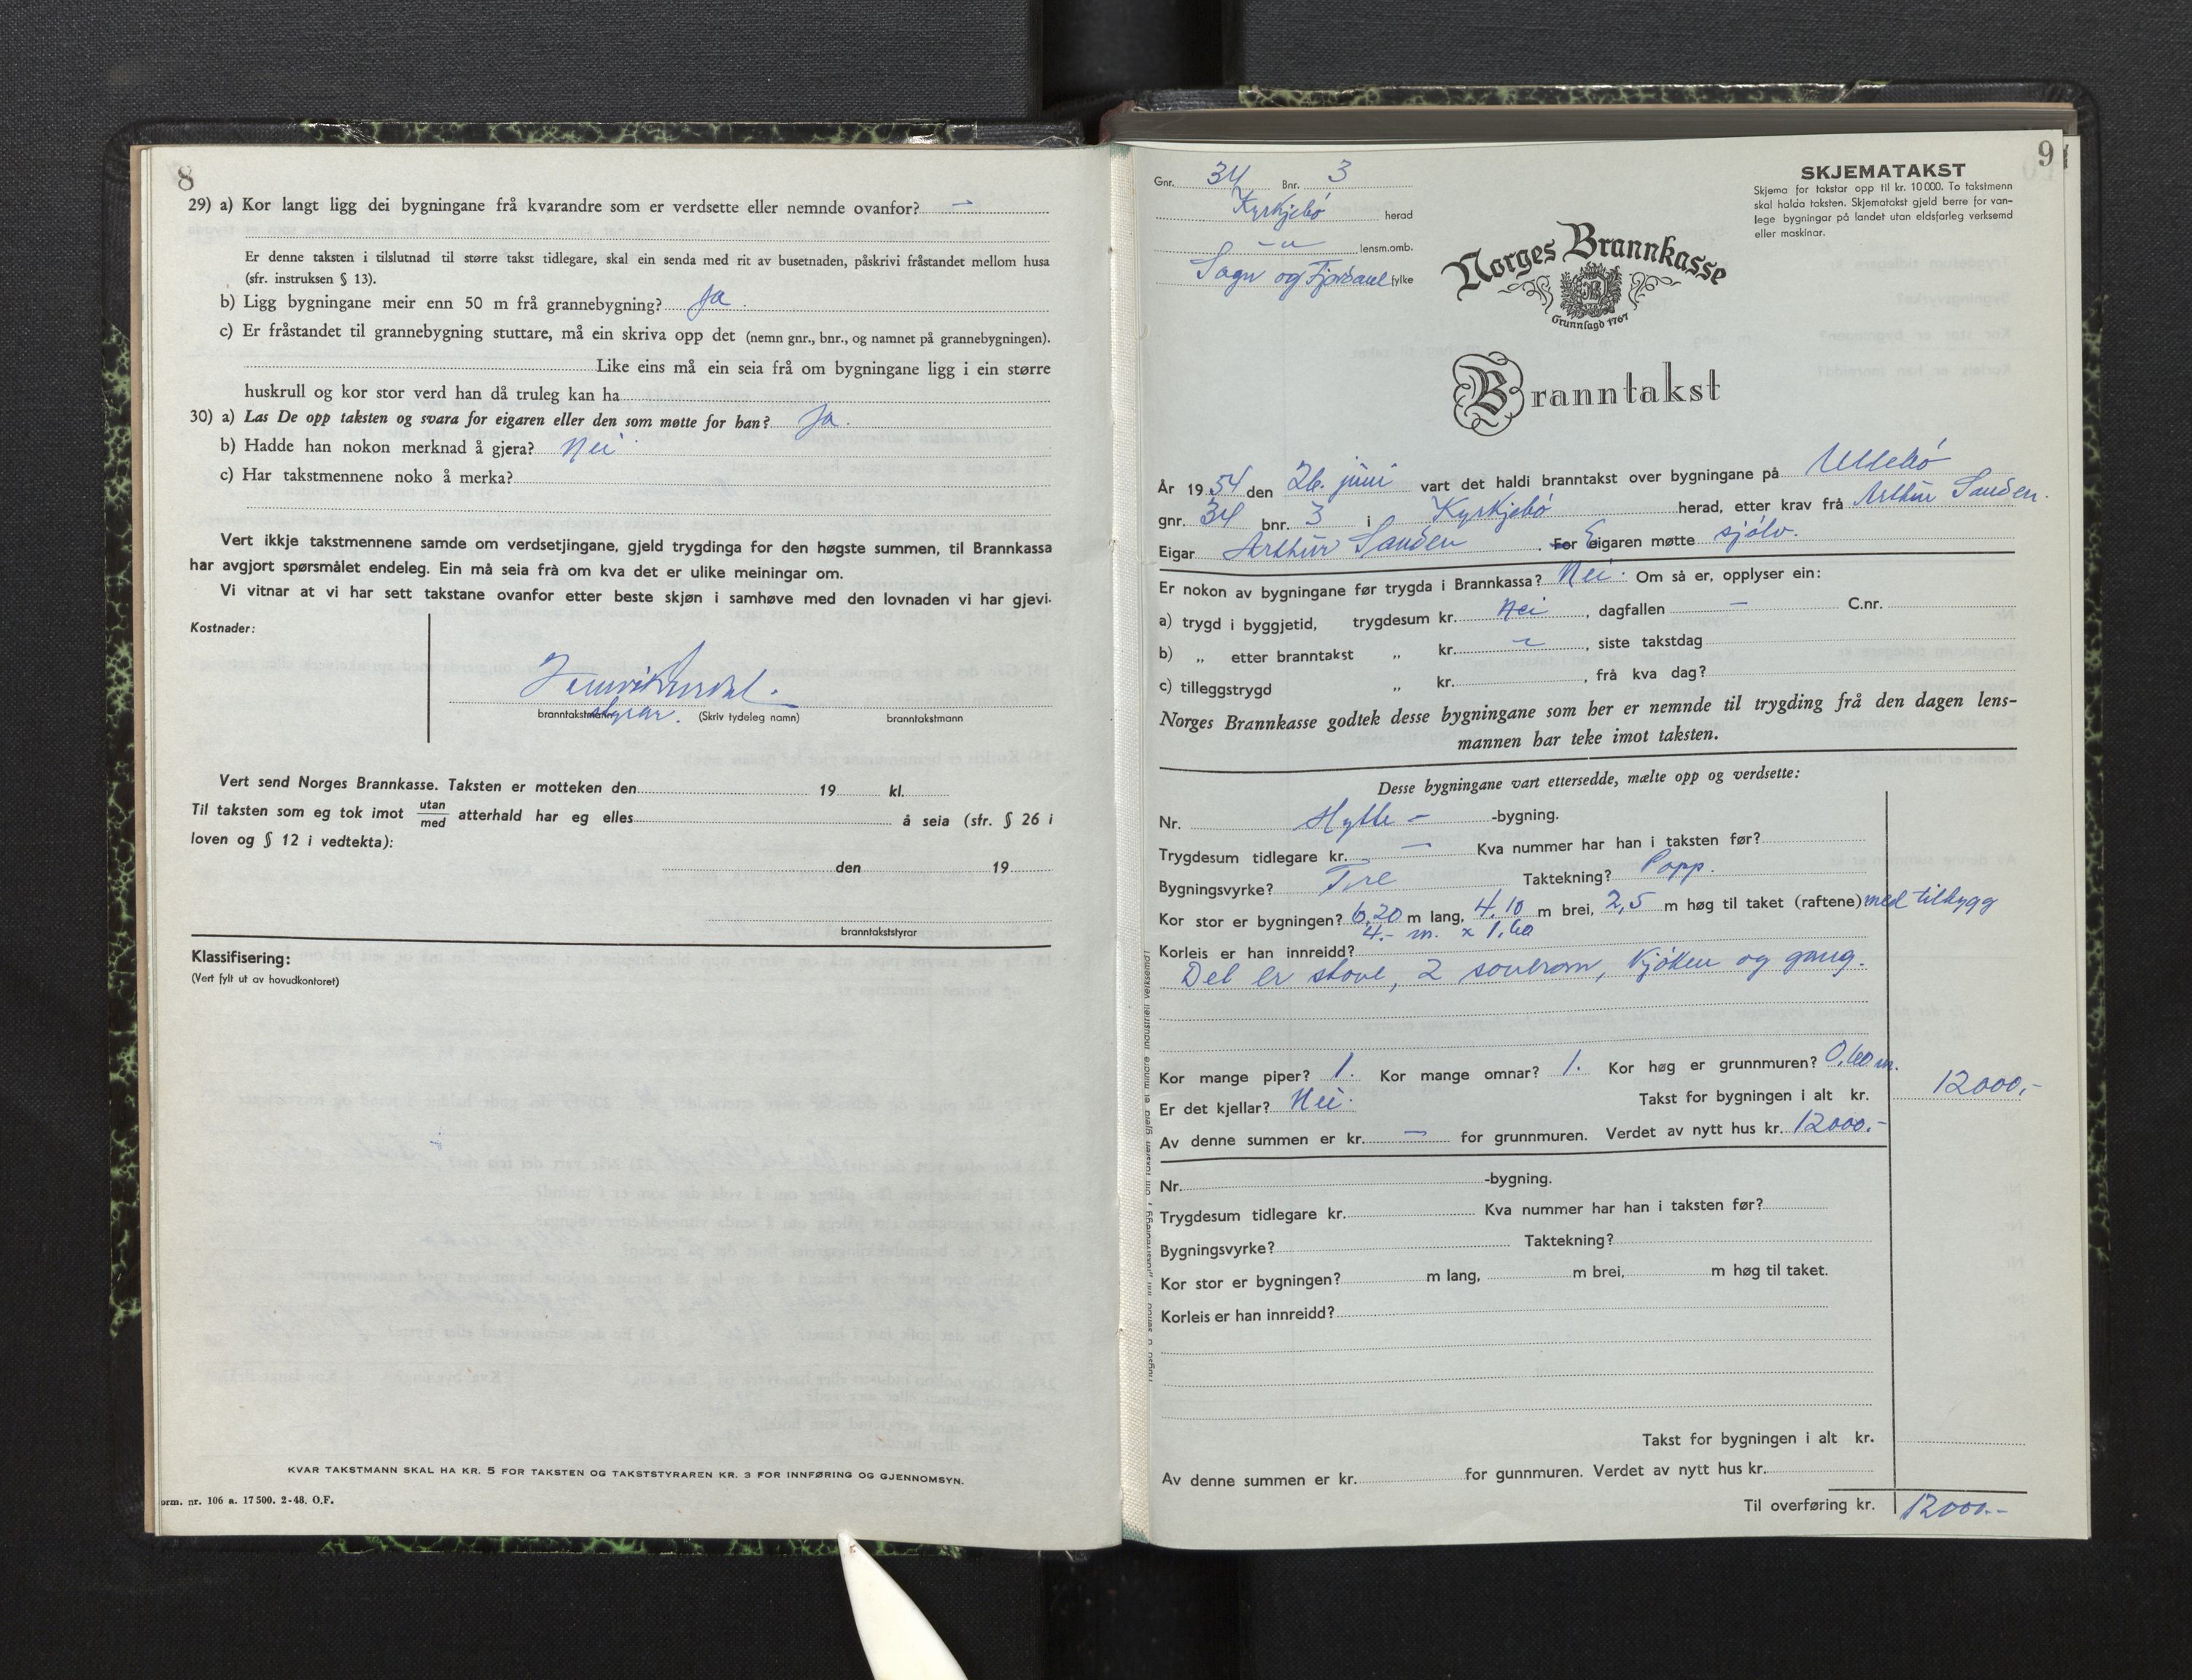 8
29) a) Kor langt ligg dei bygningane frå kvarandre som er verdsette eller nemnde ovanfor? —
Er denne taksten i tilslutnad til større takst tidlegare, skal ein senda med rit av busetnaden, påskrivi fråstandet mellom husa
(sfr. instruksen § 13).
b) Ligg bygningane meir enn 50 m frå grannebygning? Ja.
c) Er fråstandet til grannebygning stuttare, må ein skriva opp det (nemn gnr., bnr., og namnet på grannebygningen).
Like eins må ein seia frå om bygningane ligg i ein større
huskrull og kor stor verd han då truleg kan ha
30) a) Las De opp taksten og svara for eigaren eller den som møtte for han? Ja.
b) Hadde han nokon merknad å gjera? Nei
c) Har takstmennene noko å merka?
Vert ikkje takstmennene samde om verdsetjingane, gjeld trygdinga for den høgste summen, til Brannkassa
har avgjort spørsmålet endeleg. Ein må seia frå om kva det er ulike meiningar om.
Vi vitnar at vi har sett takstane ovanfor etter beste skjøn i samhøve med den lovnaden vi har gjevi.
Kostnader:
branntakstmann styrar. (Skriv tydeleg namn) branntakstmann
Vert send Norges Brannkasse. Taksten er motteken den 19 kl.
Til taksten som eg tok imot utan/med atterhald har eg elles å seia (sfr. § 26 i
loven og § 12 i vedtekta):
den 19
branntakststyrar
Klassifisering:
(Vert fylt ut av hovudkontoret)
KVAR TAKSTMANN SKAL HA KR. 5 FOR TAKSTEN OG TAKSTSTYRAREN KR. 3 FOR INNFØRING OG GJENNOMSYN.
orm. nr. 106 a. 17500. 2-48. O.F.
9
Gnr. 34 Bnr. 3
Kyrkjebó herad
— " — lensm.omb.
Sogn og Fjordane fylke
SKJEMATAKST
Skjema for takstar opp til kr. 10 000. To takstmenn
skal halda taksten. Skjematakst gjeld berre for van-
lege bygningar på landet utan eldsfarleg verksemd
eller maskinar.
Norges Brannkasse
Grunnlagd 1767
Branntakst
År 1954 den 26. juni vart det haldi branntakst over bygningane på Ullebó
gnr. 34 bnr. 3 i Kyrkjebó herad, etter krav frå Arthur Sanden.
Eigar Arthur Sanden. For Eigaren møtte sjólv.
Er nokon av bygningane før trygda i Brannkassa? Nei. Om så er, opplyser ein:
a) trygd i byggjetid, trygdesum kr. Nei, dagfallen — C.nr.
b) „ etter branntakst „ kr. —, siste takstdag
c) tilleggstrygd „ kr., frå kva dag?
Norges Brannkasse godtek desse bygningane som her er nemnde til trygding frå den dagen lens-
mannen har teke imot taksten.
Desse bygningane vart ettersedde, mælte opp og verdsette:
Nr. Hytte — -bygning.
Trygdesum tidlegare kr. — Kva nummer har han i taksten før?
Bygningsvyrke? Tre Taktekning? Papp.
Kor stor er bygningen? 6,20 m lang, 4,10 m brei, 2,5 m høg til taket (raftene) med tilbygg
4.- m. x 1,60
Korleis er han innreidd?
Det er stove, 2 soverom, kjóken og gang.
Kor mange piper? 1. Kor mange omnar? 1. Kor høg er grunnmuren? 0,60 m.
Er det kjellar? Nei. Takst for bygningen i alt kr. 12000,-
Av denne summen er kr. — for grunnmuren. Verdet av nytt hus kr. 12000.-
Nr. -bygning.
Trygdesum tidlegare kr. Kva nummer har han i taksten før?
Bygningsvyrke? Taktekning?
Kor stor er bygningen? m lang, m brei, m høg til taket.
Korleis er han innreidd?
Takst for bygningen i alt kr.
Av denne summen er kr. for gunnmuren. Verdet av nytt hus kr.
Til overføring kr. 12000.-